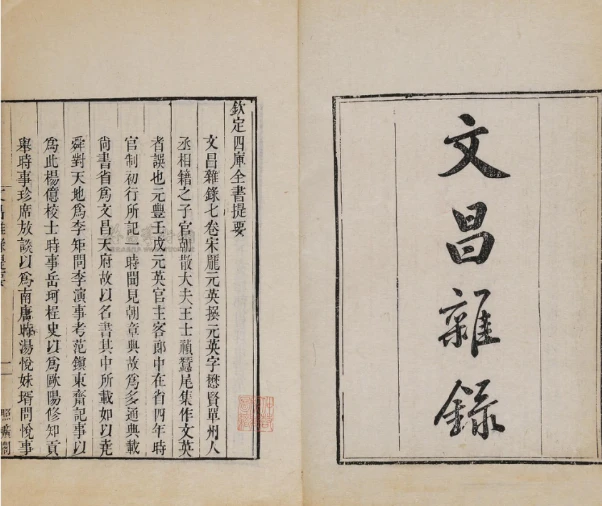 文昌雜錄
欽定四庫全書提要
文昌雜錄七卷宋龐元英撰元英字懋賢單州人
丞相籍之子官朝散大夫王士禎蠶尾集作文英
者誤也元豐壬戌元英官主客郎中在省四年時
官制初行所記一時聞見朝章典故為多通典載
尙書省為文昌天府故以名書其中所載如以堯
舜對天地為李矩問李演事考范鎭東齋記事以
為此楊億校士時事岳珂桯史以為歐陽修知貢
舉時事珍席放談以為南唐時湯悅妹壻問悅事
文昌雜錄提要
一
照曠閣